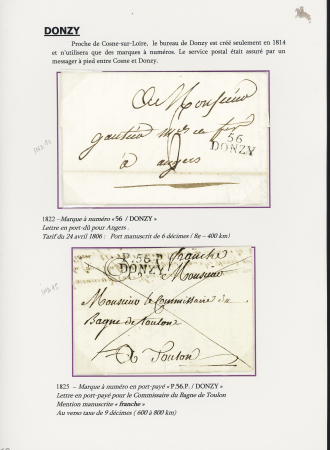 DONZY
Proche de Cosne-sur-Loire, le bureau de Donzy est créé seulement en 1814
et n'utilisera que des marques à numéros. Le service postal était assuré par un
messager à pied entre Cosne et Donzy.
A Monsieur
gautier
56
DONZY
à angers
1822 – Marque à numéro « 56 / DONZY »
Lettre en port-dû pour Angers .
Tarif du 24 avril 1806 : Port manuscrit de 6 décimes / 8e – 400 km)
P.56.P.
DONZY
franche
A Monsieur
Monsieur le Commissaire du
Bagne de toulon
A Toulon
1825 – Marque à numéro en port-payé « P.56.P. / DONZY »
Lettre en port-payé pour le Commissaire du Bagne de Toulon
Mention manuscrite « franche »
Au verso taxe de 9 décimes ( 600 à 800 km)